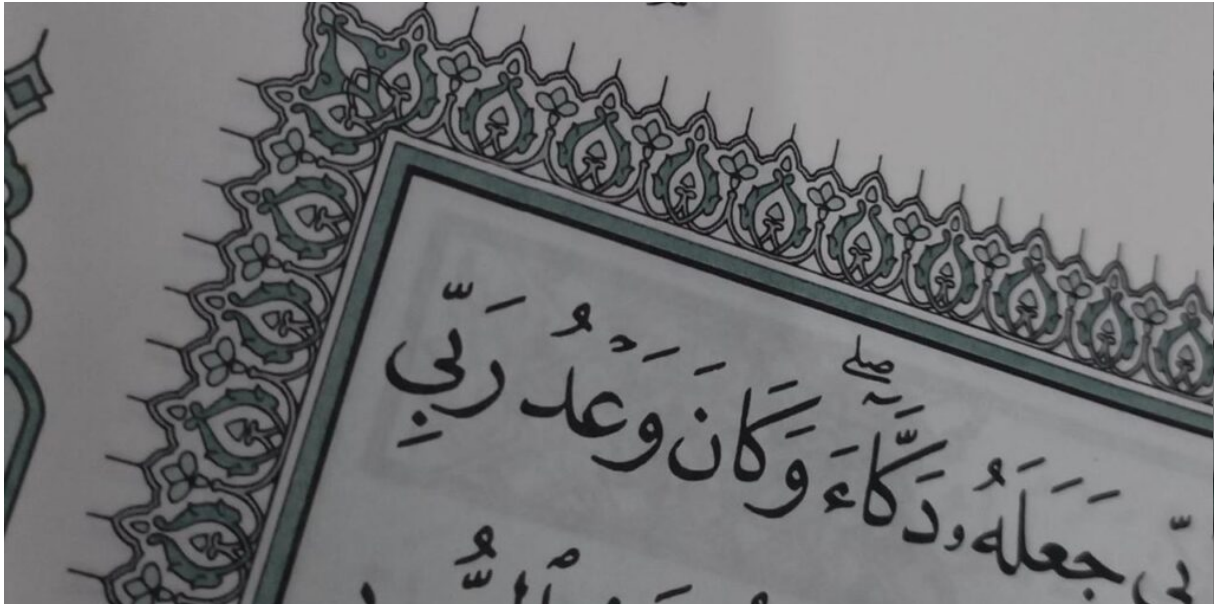 جَعَلَهُۥ دَكَّآءَۖ وَكَانَ وَعْدُ رَبِّي